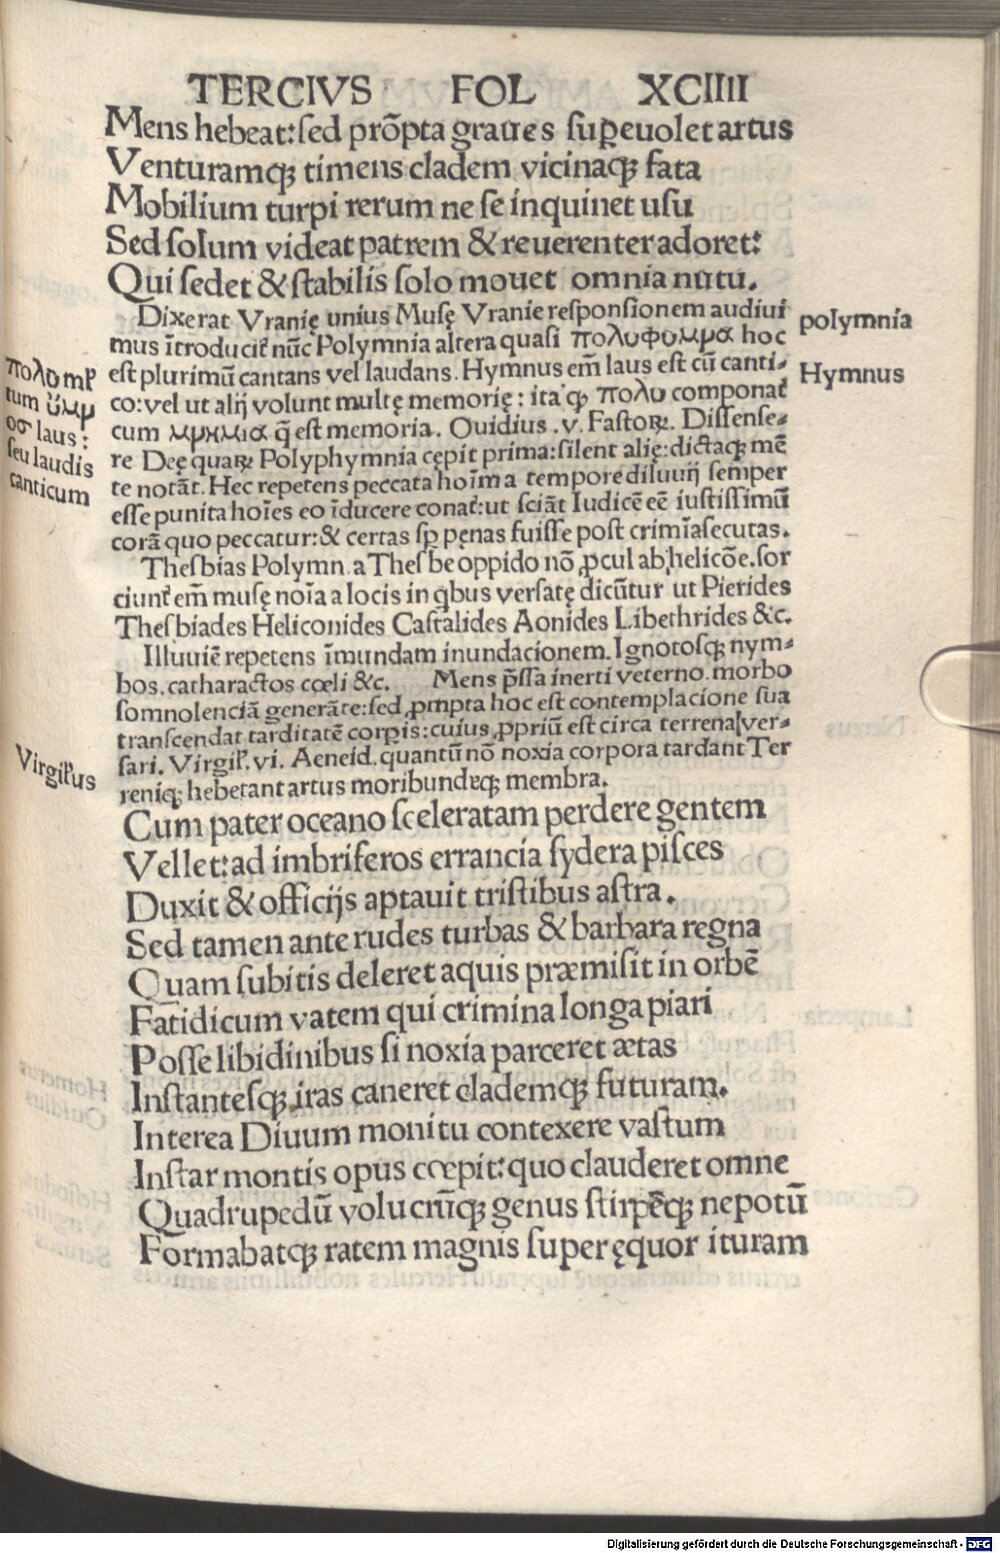 TERCIVS FOL XCIIII
Mens hebeat: sed prõpta graues suꝑeuolet artus
Venturamqꝫ timens cladem vicinaqꝫ fata
Mobilium turpi rerum ne se inquinet usu
Sed solum videat patrem & reuerenter adoret:
Qui sedet & stabilis solo mouet omnia nutu.
Dixerat Vranię unius Musę Vranie responsionem audiui
mus ĩtroducit᷑ nũc Polymnia altera quasi πολυφυμμα hoc
est plurimũ cantans vel laudans. Hymnus em̃ laus est cũ canti⸗
co: vel ut alij volunt multę memorię: ita ꝙ πολυ componat᷑
cum μμημια q̃ est memoria. Ouidius .v. Fastoꝝ. Dissense⸗
re Deę quaꝝ Polyphymnia cępit prima: silent alię: dictaqꝫ mẽ
te notãt. Hec repetens peccata hoĩm a tempore diluuij semper
esse punita hoĩes eo ĩducere conat᷑: ut sciãt Iudicẽ eẽ iustissimũ
corã quo peccatur: & certas sꝑ pęnas fuisse post crimĩa secutas.
Thesbias Polymn. a Thesbe oppido nõ ꝓcul ab helicõe. sor
ciunt᷑ em̃ musę noĩa a locis in qbus versatę dicũtur ut Pierides
Thesbiades Heliconides Castalides Aonides Libethrides &c.
Illuuiẽ repetens ĩmundam inundacionem. Ignotosqꝫ nym⸗
bos. catharactos cœli &c. Mens p̃ssa inerti veterno. morbo
somnolenciã generãte: sed ꝓmpta hoc est contemplacione sua
transcendat tarditatẽ corꝑis: cuius ꝓpriũ est circa terrena ver⸗
sari. Virgil᷑. vi. Aeneid. quantũ nõ noxia corpora tardant Ter
reniqꝫ hebetant artus moribundaqꝫ membra.
Cum pater oceano sceleratam perdere gentem
Vellet: ad imbriferos errancia sydera pisces
Duxit & officijs aptauit tristibus astra.
Sed tamen ante rudes turbas & barbara regna
Quam subitis deleret aquis præmisit in orbẽ
Fatidicum vatem qui crimina longa piari
Posse libidinibus si noxia parceret ætas
Instantesqꝫ iras caneret clademqꝫ futuram.
Interea Diuum monitu contexere vastum
Instar montis opus cœpit: quo clauderet omne
Quadrupedũ volucrũqꝫ genus stirpẽqꝫ nepotũ
Formabatqꝫ ratem magnis super ęquor ituram
polymnia
Hymnus
πολυ ml᷑
tum ὕμμ
οσ laus:
seu laudis
canticum
Virgil᷑us
Digitalisierung gefördert durch die Deutsche Forschungsgemeinschaft - DFG